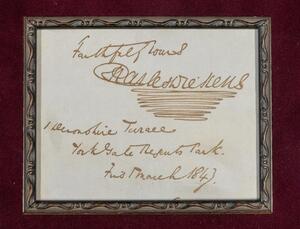 Faithfully Yours
Charles Dickens
1 Devonshire Terrace
York Gate Regents Park.
First March 1843.